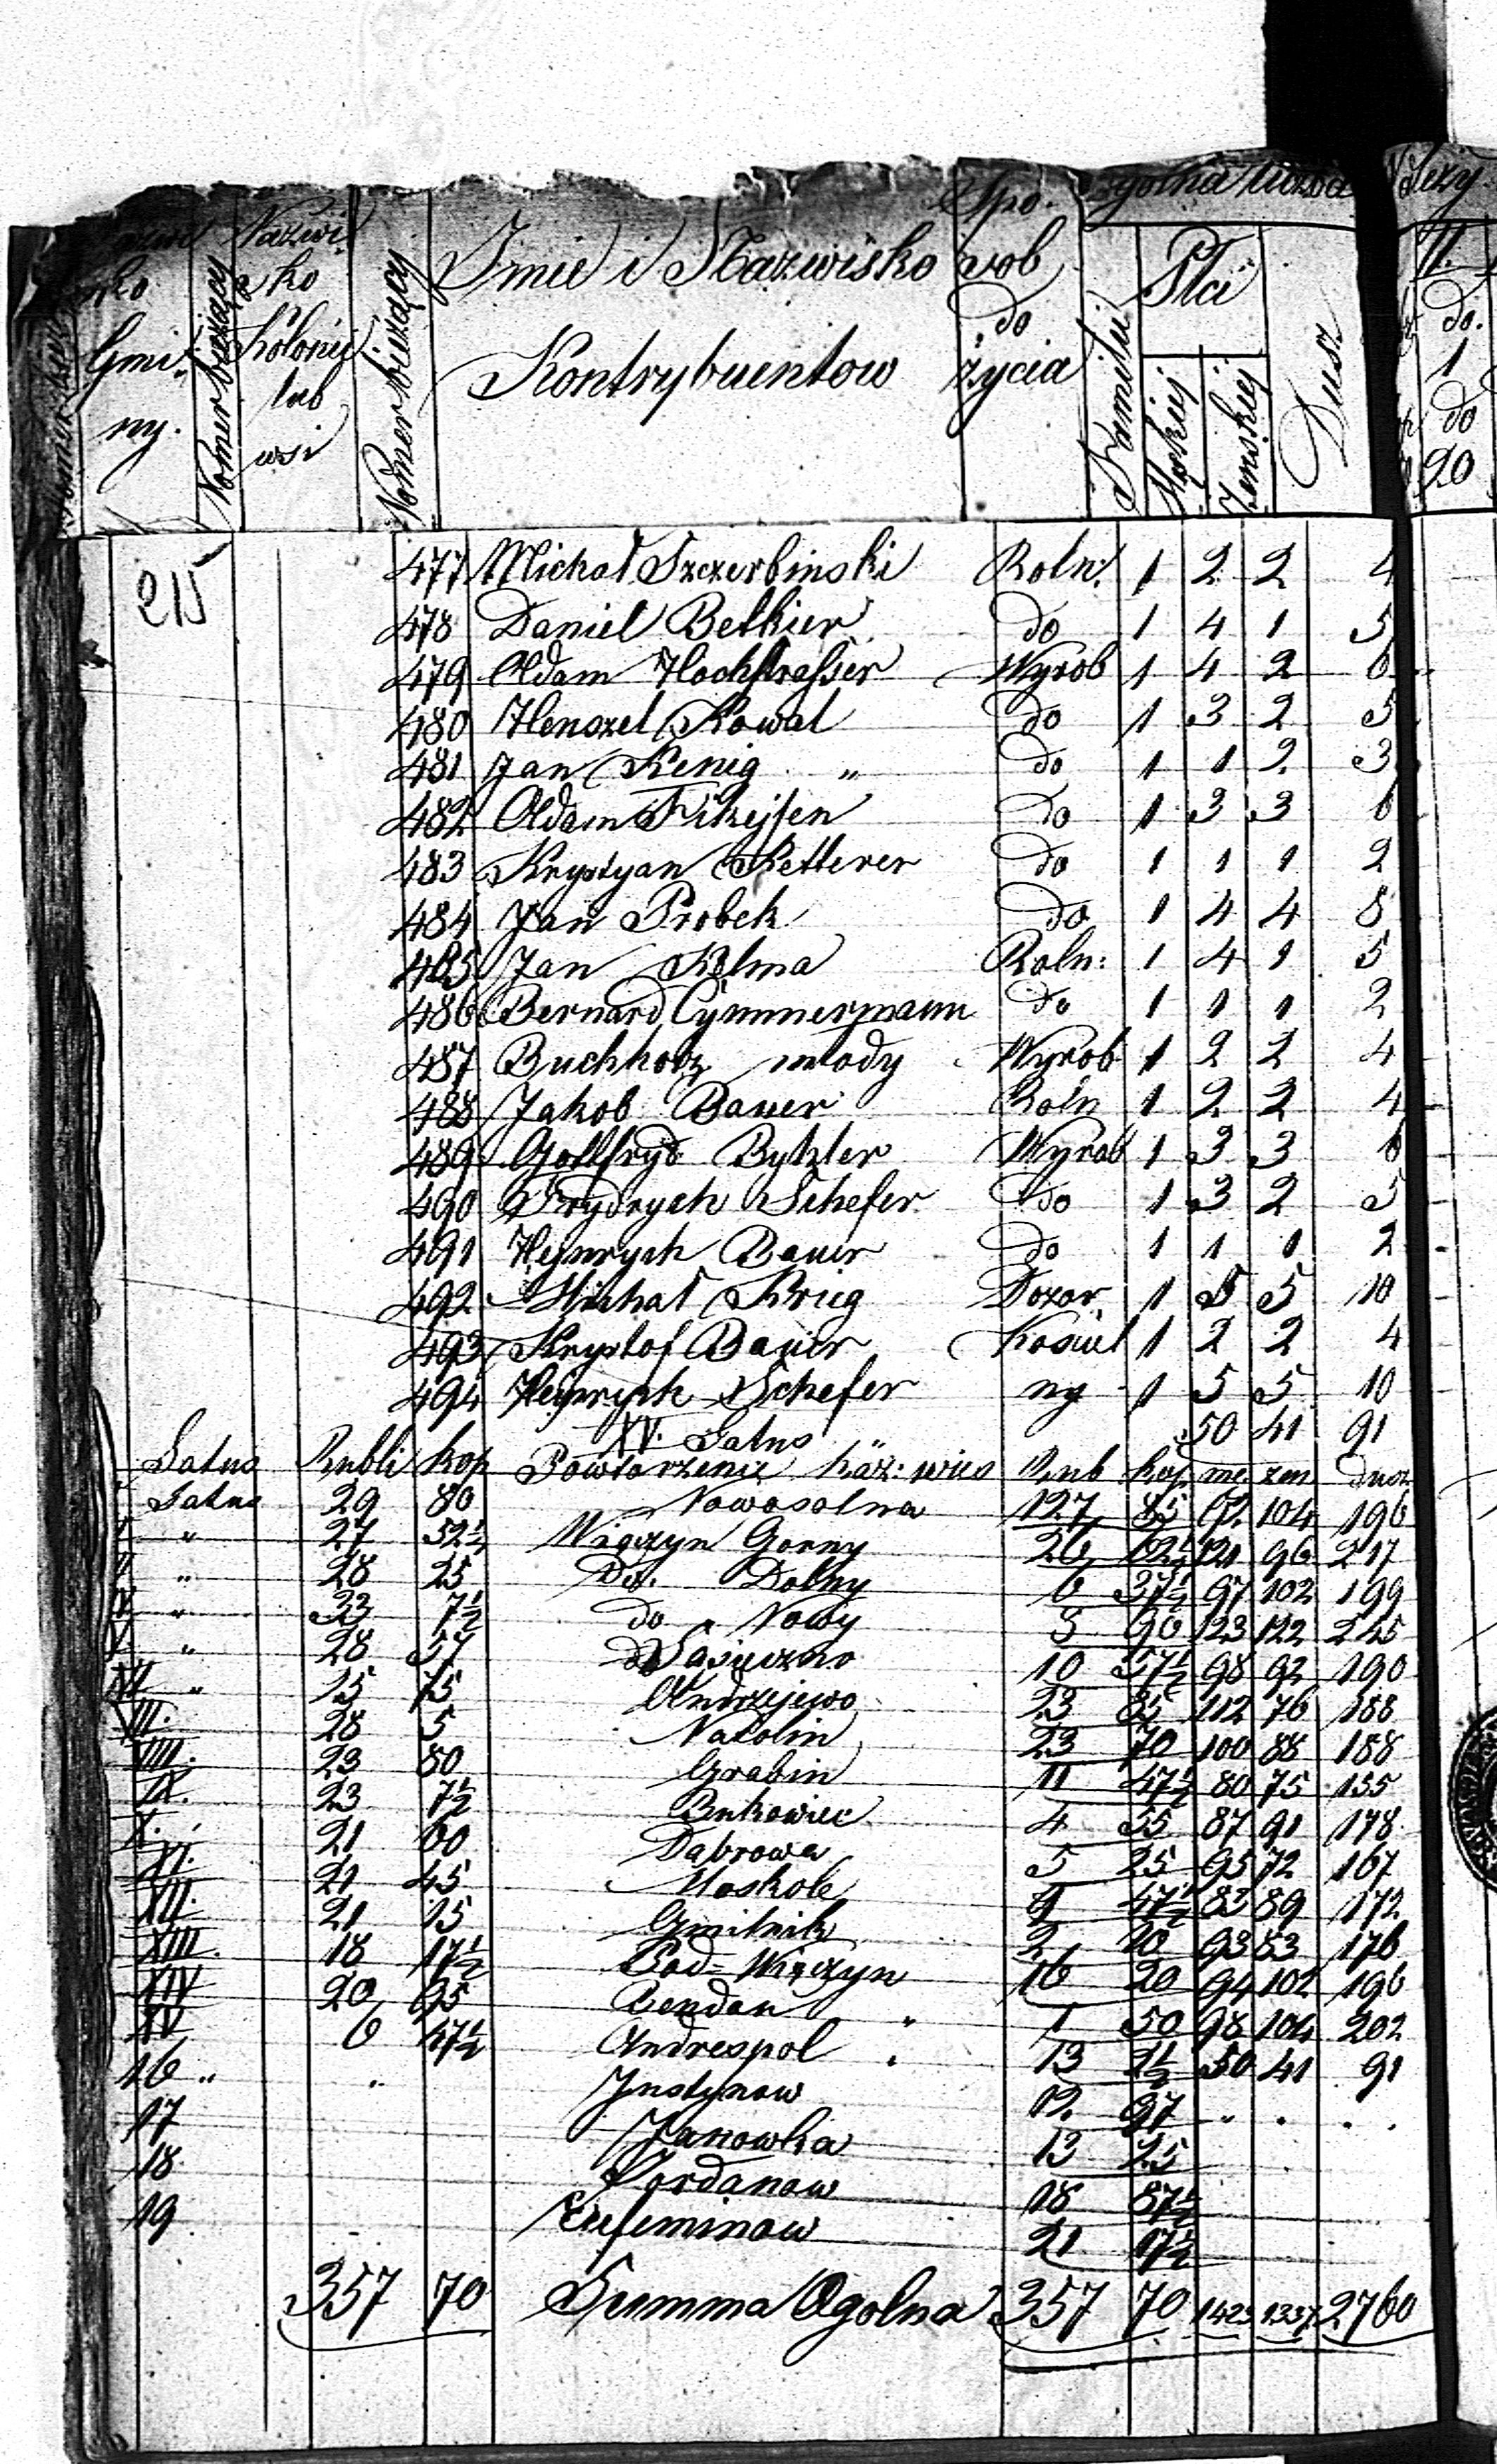 Nazwi sko Gmi ny.
Nomer bieżący
Nazwi sko Kolonii lub wsi
Nomer bieżący
Imie i Nazwisko Kontrybuentow
Spo sob do życia
Ogolna liczba
Familii
Płci
Męskiej
Żenskiej
Dusz
II. do. 1 do 20
215
477 Michał Szczerbinski Roln: 1 2 2 4
478 Daniel Betkier do 1 4 1 5
479 Adam Hochstrasser Wyrob 1 4 2 6
480 Henszel Kowal do 1 3 2 5
481 Jan Kenig " do 1 1 2 3
482 Adam do 1 3 3 6
483 Krystyan Ketterer do 1 1 1 2
484 Jan Probek do 1 4 4 8
485 Jan Kelma Roln: 1 4 1 5
486 Bernard Cymmermann do 1 1 1 2
487 Buchholz młody Wyrob 1 2 2 4
488 Jakob Bauer Roln 1 2 2 4
489 Gottfryd Bytzler Wyrob 1 3 3 6
490 Frydrych Schefer do 1 3 2 5
491 Heynrych Bauer do 1 1 1 2
492 Michał Krieg Dozor 1 5 5 10
493 Krystof Bauer Kosciel 1 2 2 4
494 Heynrych Schefer ny 1 5 5 10
XV. Latus " 50 41 91
Latus Rubli Kop Powtorzenie Kaz: wies Rub Kop me. zen dusz
Latus 29 80 Nowosolna 127 85 92 104 196
" 27 52½ Wiączyn Gorny 26 62½ 121 96 217
" 28 25 Do. Dolny 6 37½ 97 102 199
" 33 7½ do " Nowy 3 90 123 122 245
V. " 28 57 do Lasieczno 10 57½ 98 92 190
VI " 15 75 Andrzejewo 23 85 112 76 188
VII. 28 5 Natolin 23 70 100 88 188
VIII. 23 80 Grabin 11 47½ 80 75 155
IX. 23 7½ Bukowiec 4 55 87 91 178
X. 21 60 Dąbrowa 5 25 95 72 167
XI. 21 45 Moskole 9 47½ 83 89 172
XII. 21 15 Gmilnik 2 20 93 83 176
XIII. 18 17½ Pod=Wiączyn 16 20 94 102 196
XIV 20 95 Bendon " 1 50 98 104 202
XV 6 47½ Andrespol 13 2½ 50 41 91
16 " " Justynow 12. 97 " . . .
17 Janowka 13 25
18 Jordanow 18 87½
19 Eufeminow 21 17½
357 70 Summa Ogolna 357 70 1423 1337 2760